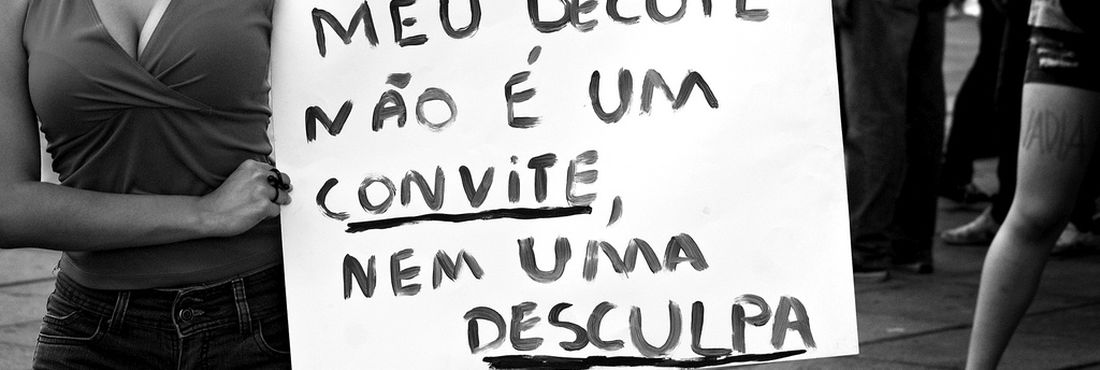 MEU DECOTE
NÃO É UM
CONVITE,
NEM UMA
DESCULPA
VADIA